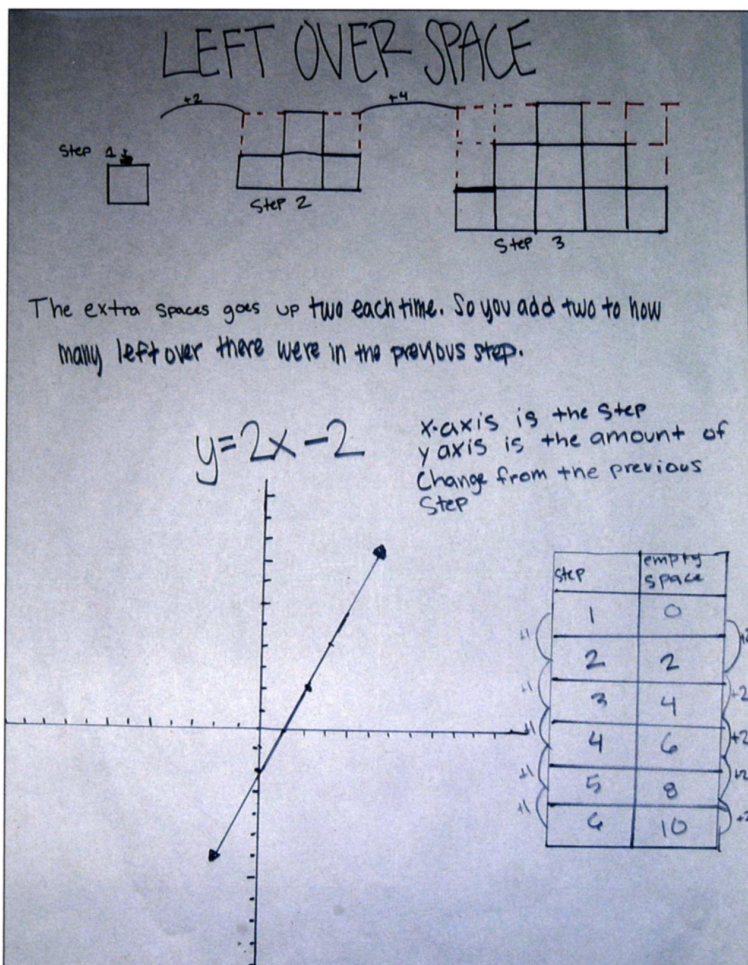 LEFT OVER SPACE
+2
+4
Step 1
Step 2
Step 3
The extra spaces goes up two each time. So you add two to how
many left over there were in the previous step.
y=2x-2
x-axis is the step
y axis is the amount of
Change from the previous
Step
step empty space
1 0
+1 +2
2 2
+1 +2
3 4
+1 +2
4 6
+1 +2
5 8
+1 +2
6 10